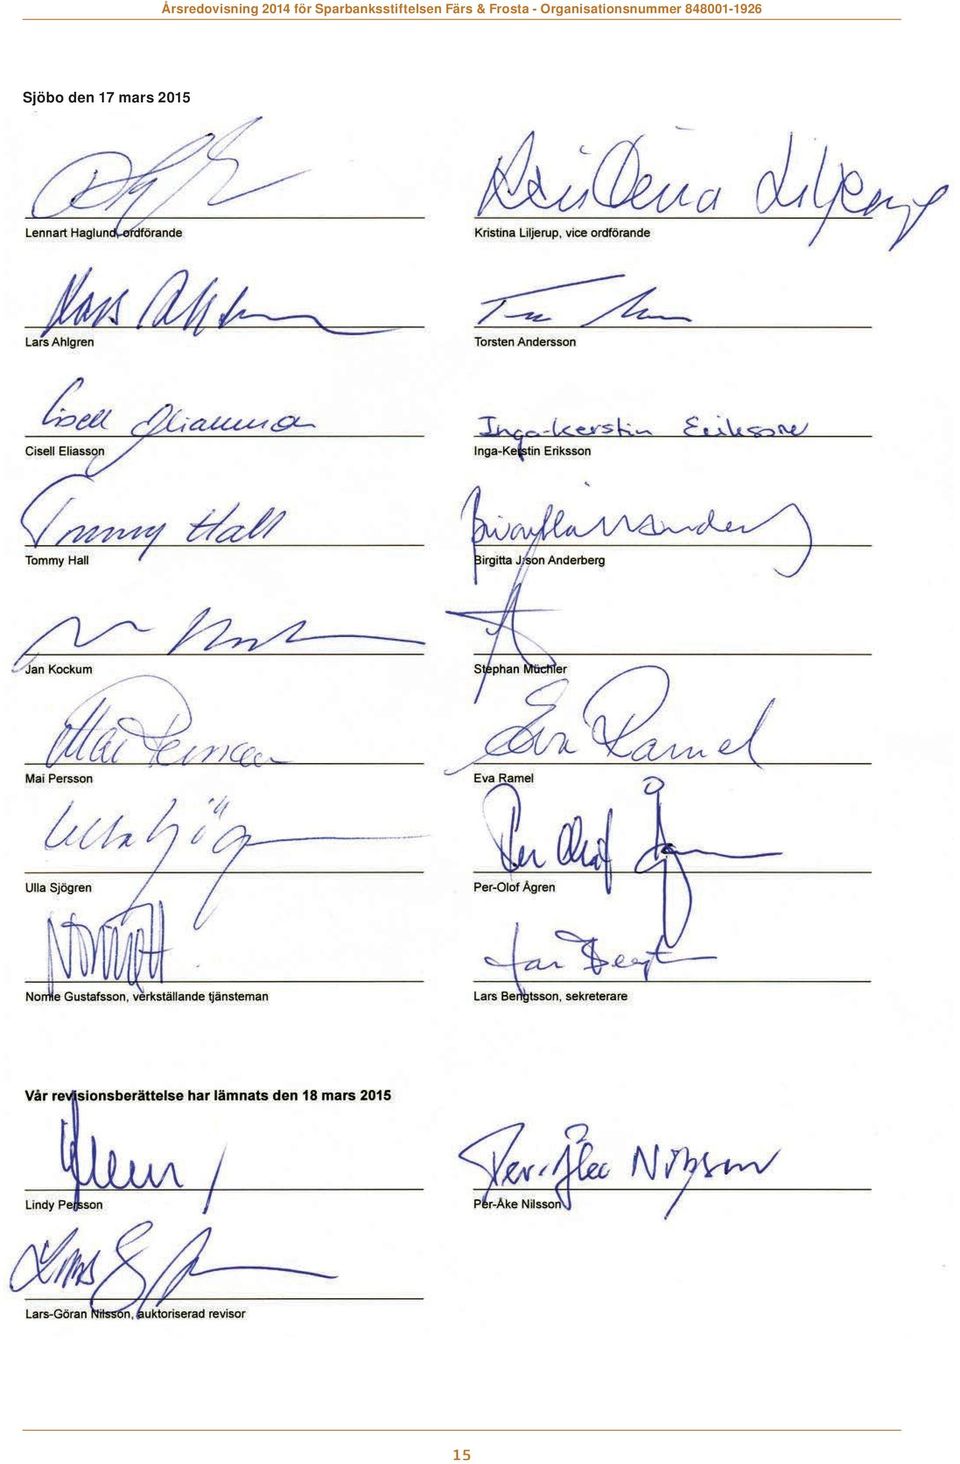 Årsredovisning 2014 för Sparbanksstiftelsen Färs & Frosta - Organisationsnummer 848001-1926
Sjöbo den 17 mars 2015
Lennart Haglund, ordförande
Kristina Liljerup
Kristina Liljerup, vice ordförande
Lars Ahlgren
Torsten Andersson
Cisell Eliasson
Inga-Kerstin Eriksson
Inga-Kerstin Eriksson
Tommy Hall
Tommy Hall
Birgitta J:son Anderberg
Jan Kockum
Stephan Müchler
Mai Persson
Mai Persson
Eva Ramel
Eva Ramel
Ulla Sjögren
Per Olof Ågren
Per-Olof Ågren
Nomie Gustafsson, verkställande tjänsteman
Lars Bengtsson, sekreterare
Vår revisionsberättelse har lämnats den 18 mars 2015
Lindy Persson
Per-Åke Nilsson
Per-Åke Nilsson
Lars-Göran Nilsson, auktoriserad revisor
15